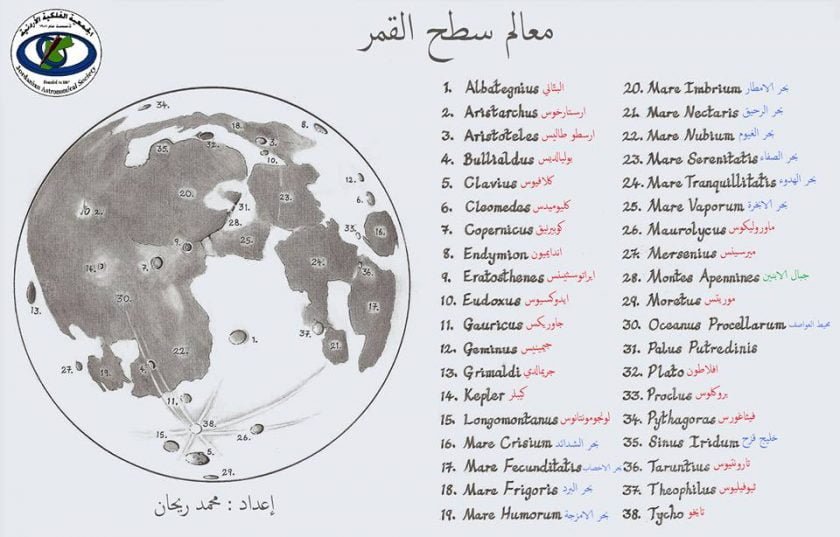 الجمعية الفلكية الأردنية
Jordanian Astronomical Society
معالم سطح القمر
1. Albategnius البتّاني
2. Aristarchus ارستارخوس
3. Aristoteles ارسطو طاليس
4. Bullialdus بوليالديس
5. Clavius كلافيوس
6. Cleomedes كليوميدس
7. Copernicus كوبيرنيق
8. Endymion انديميون
9. Eratosthenes ايراتوستينس
10. Eudoxus ايدوكسيوس
11. Gauricus جاوريكس
12. Geminus جيمينيس
13. Grimaldi جريمالدي
14. Kepler كيبلر
15. Longomontanus لونجومونتانوس
16. Mare Crisium بحر الشدائد
17. Mare Fecunditatis بحر الاخصاب
18. Mare Frigoris بحر البرد
19. Mare Humorum بحر الامزجة
20. Mare Imbrium بحر الامطار
21. Mare Nectaris بحر الرحيق
22. Mare Nubium بحر الغيوم
23. Mare Serenitatis بحر الصفاء
24. Mare Tranquillitatis بحر الهدوء
25. Mare Vaporum بحر الابخرة
26. Maurolycus ماوروليكوس
27. Mersenius ميرسينس
28. Montes Apennines جبال الابنين
29. Moretus موريتس
30. Oceanus Procellarum محيط العواصف
31. Palus Putredinis
32. Plato افلاطون
33. Proclus بروكلوس
34. Pythagoras فيثاغورس
35. Sinus Iridum خليج قزح
36. Taruntius تارونتيوس
37. Theophilus ثيوفيليوس
38. Tycho تايخو
34.
8.
18.
3.
32.
35.
10.
12.
20.
23.
6.
2.
31.
28.
33.
16.
9.
25.
7.
24.
36.
16.
13.
30.
17.
37.
1.
21.
22.
27.
19.
4.
11.
38.
26.
15.
5.
29.
إعداد : محمد ريحان